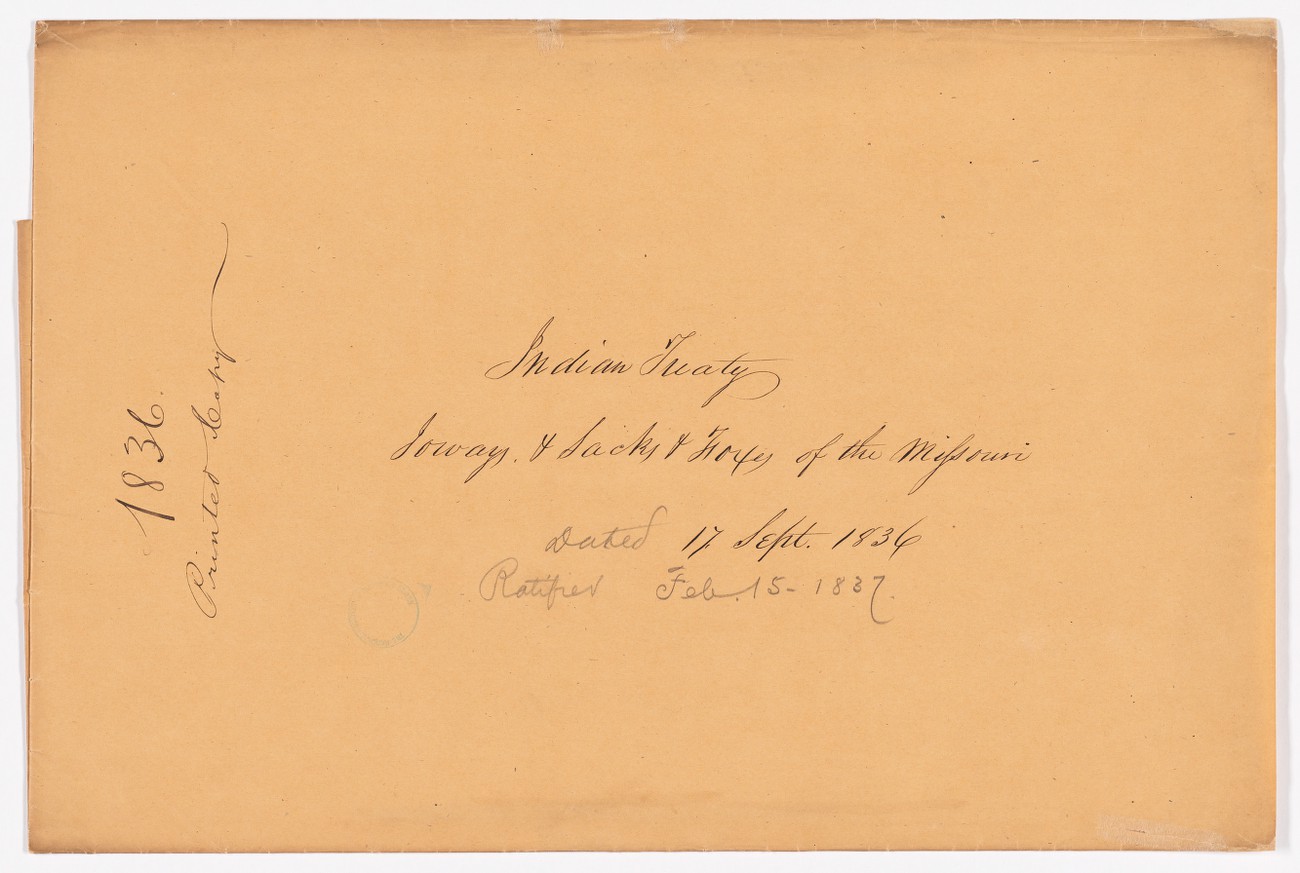 1836.
Printed Copy
Indian Treaty
Ioways. & Sacks & Foxes of the Missouri
Dated 17 Sept. 1836
Ratified Feb. 15 - 1837.